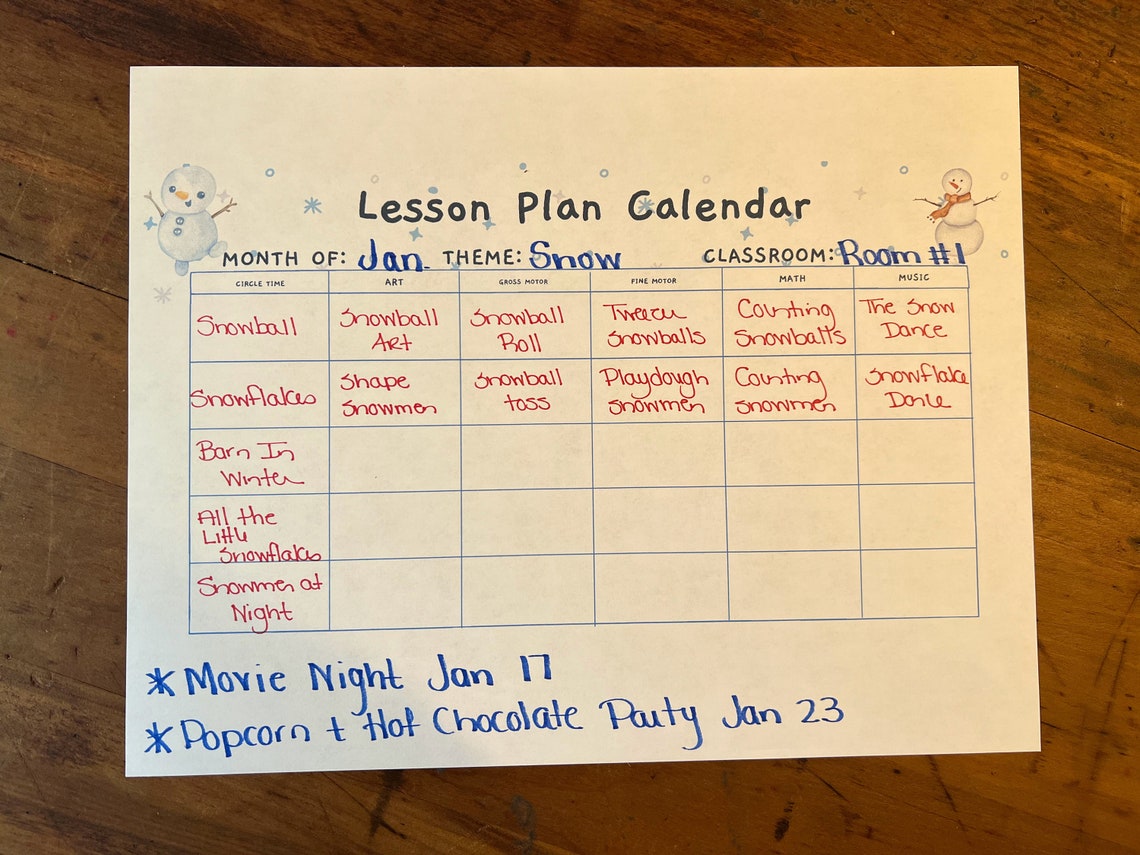 Lesson Plan Calendar
MONTH OF: Jan. THEME: Snow CLASSROOM: Room #1
CIRCLE TIME ART GROSS MOTOR FINE MOTOR MATH MUSIC
Snowball
Snowball
Art
Snowball
Roll
Tweezer
Snowballs
Counting
Snowballs
The Snow
Dance
Snowflakes
Shape
Snowmen
Snowball
toss
Playdough
Snowmen
Counting
Snowmen
Snowflake
Dance
Barn In
Winter
All the
Little
Snowflakes
Snowmen at
Night
* Movie Night Jan 17
* Popcorn + Hot Chocolate Party Jan 23